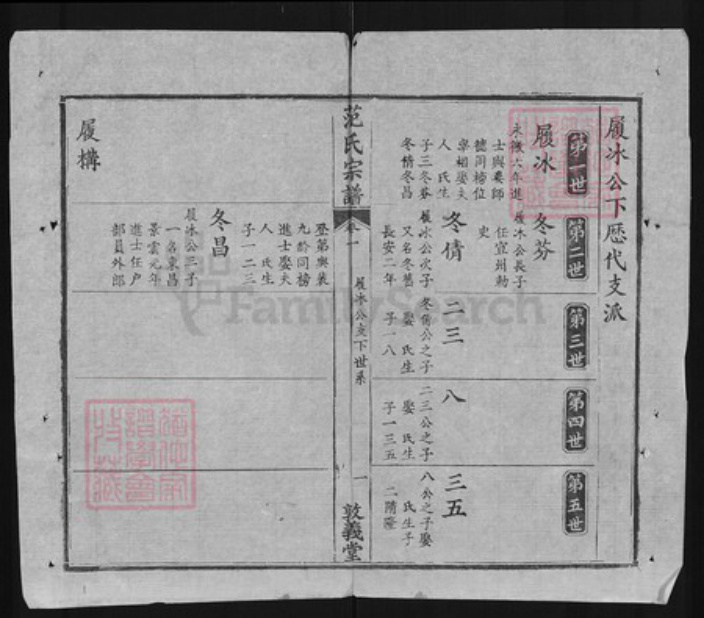 履冰公下歷代支派
第一世
第二世
第三世
第四世
第五世
履冰
永徽六年進
士與婁師
德同榜位
宰相娶夫
人 氏生
子三冬芬
冬倩冬昌
冬芬
履冰公長子
任宣州勅
史
冬倩
履冰公次子
又名冬舊
長安二年
登第與裴
九齡同榜
進士娶夫
人 氏生
子一二三
二三
冬倩公之子
娶 氏生
子一八
八
二三公之子
娶 氏生
子一三五
三五
八公之子娶
氏生子
二隋隆
范氏宗譜
卷一
履冰公支下世系
一
敦義堂
冬昌
履冰公三子
一名東昌
景雲元年
進士任户
部員外郎
履構
FamilySearch